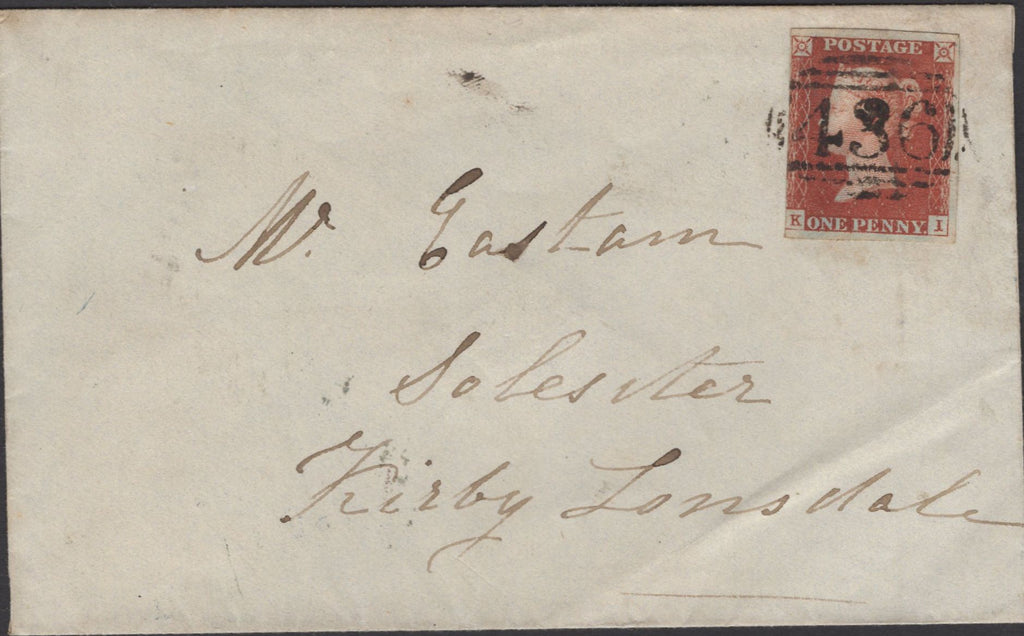 POSTAGE
436
K ONE PENNY. I
Mr. Eastam
Solesiter
Kirby Lonsdale